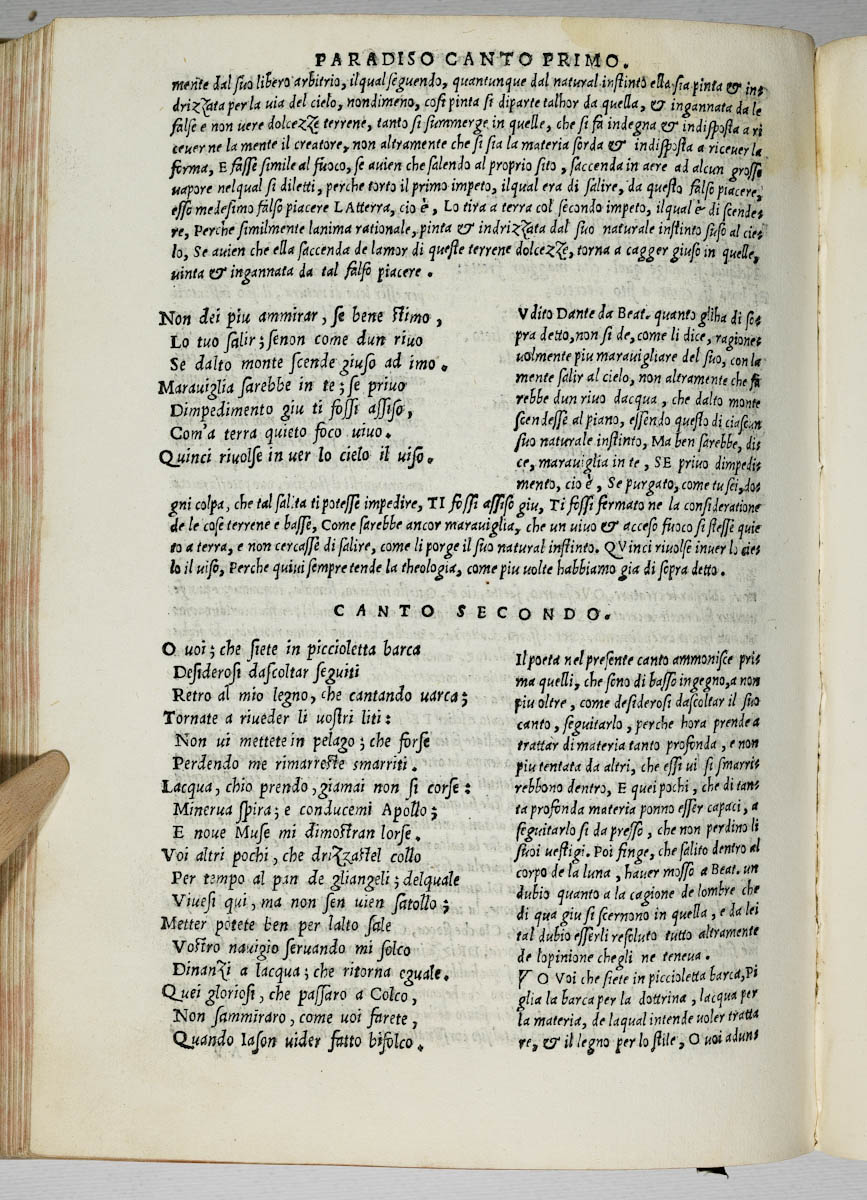 PARADISO CANTO PRIMO.
mente dal suo libero arbitrio, ilqual seguendo, quantunque dal natural instinto ella sia pinta & in⸗
drizzata per la uia del cielo, nondimeno, cosi pinta si diparte talhor da quella, & ingannata da le
false e non uere dolcezze terrene, tanto si summerge in quelle, che si fa indegna & indisposta a ri
ceuer ne la mente il creatore, non altramente che si sia la materia sorda & indisposta a riceuer la
forma, E fasse simile al fuoco, se auien che salendo al proprio sito, saccenda in aere ad alcun grosso
uapore nelqual si diletti, perche torto il primo impeto, ilqual era di salire, da questo falso piacere,
esso medesimo falso piacere LAtterra, cio è, Lo tira a terra col secondo impeto, ilqual è di scende⸗
re, Perche similmente lanima rationale, pinta & indrizzata dal suo naturale instinto suso al cie⸗
lo, Se auien che ella saccenda de lamor di queste terrene dolcezze, torna a cagger giuso in quelle,
uinta & ingannata da tal falso piacere.
Non dei piu ammirar, se bene stimo,
Lo tuo salir; senon come dun riuo
Se dalto monte scende giuso ad imo.
Marauiglia sarebbe in te; se priuo
Dimpedimento giu ti fossi assiso,
Com'a terra quieto foco uiuo.
Quinci riuolse in uer lo cielo il uiso.
Vdito Dante da Beat. quanto gliha di so⸗
pra detto, non si de, come li dice, ragione⸗
uolmente piu marauigliare del suo, con la
mente salir al cielo, non altramente che fa
rebbe dun riuo dacqua, che dalto monte
scendesse al piano, essendo questo di ciascun
suo naturale instinto, Ma ben sarebbe, di⸗
ce, marauiglia in te, SE priuo dimpedi⸗
mento, cio è, Se purgato, come tu sei, do⸗
gni colpa, che tal salita ti potesse impedire, TI fossi assiso giu, Ti fossi fermato ne la consideratione
de le cose terrene e basse, Come sarebbe ancor marauiglia, che un uiuo & acceso fuoco si stesse quie
to a terra, e non cercasse di salire, come li porge il suo natural instinto. QVinci riuolse inuer lo cie⸗
lo il uiso, Perche quiui sempre tende la theologia, come piu uolte habbiamo gia di sopra detto.
CANTO SECONDO.
O uoi; che siete in piccioletta barca
Desiderosi dascoltar seguiti
Retro al mio legno, che cantando uarca;
Tornate a riueder li uostri liti:
Non ui mettete in pelago; che forse
Perdendo me rimarreste smarriti.
Lacqua, chio prendo, giamai non si corse:
Minerua spira; e conducemi Apollo;
E noue Muse mi dimostran lorse.
Voi altri pochi, che drizzastel collo
Per tempo al pan de gliangeli; delquale
Viuesi qui, ma non sen uien satollo;
Metter potete ben per lalto sale
Vostro nauigio seruando mi solco
Dinanzi a lacqua; che ritorna eguale.
Quei gloriosi, che passaro a Colco,
Non sammiraro, come uoi farete,
Quando Iason uider fatto bifolco.
Il poeta nel presente canto ammonisce pri⸗
ma quelli, che sono di basso ingegno, a non
piu oltre, come desiderosi dascoltar il suo
canto, seguitarlo, perche hora prende a
trattar di materia tanto profonda, e non
piu tentata da altri, che essi ui si smarri⸗
rebbono dentro, E quei pochi, che di tan⸗
ta profonda materia ponno esser capaci, a
seguitarlo si da presso, che non perdino li
suoi uestigi. Poi finge, che salito dentro al
corpo de la luna, hauer mosso a Beat. un
dubio quanto a la cagione de lombre che
di qua giu si scernono in quella, e da lei
tal dubio esserli resoluto tutto altramente
de lopinione chegli ne teneua.
O Voi che siete in piccioletta barca, Pi
glia la barca per la dottrina, lacqua per
la materia, de laqual intende uoler tratta
re, & il legno per lo stile, O uoi adun⸗